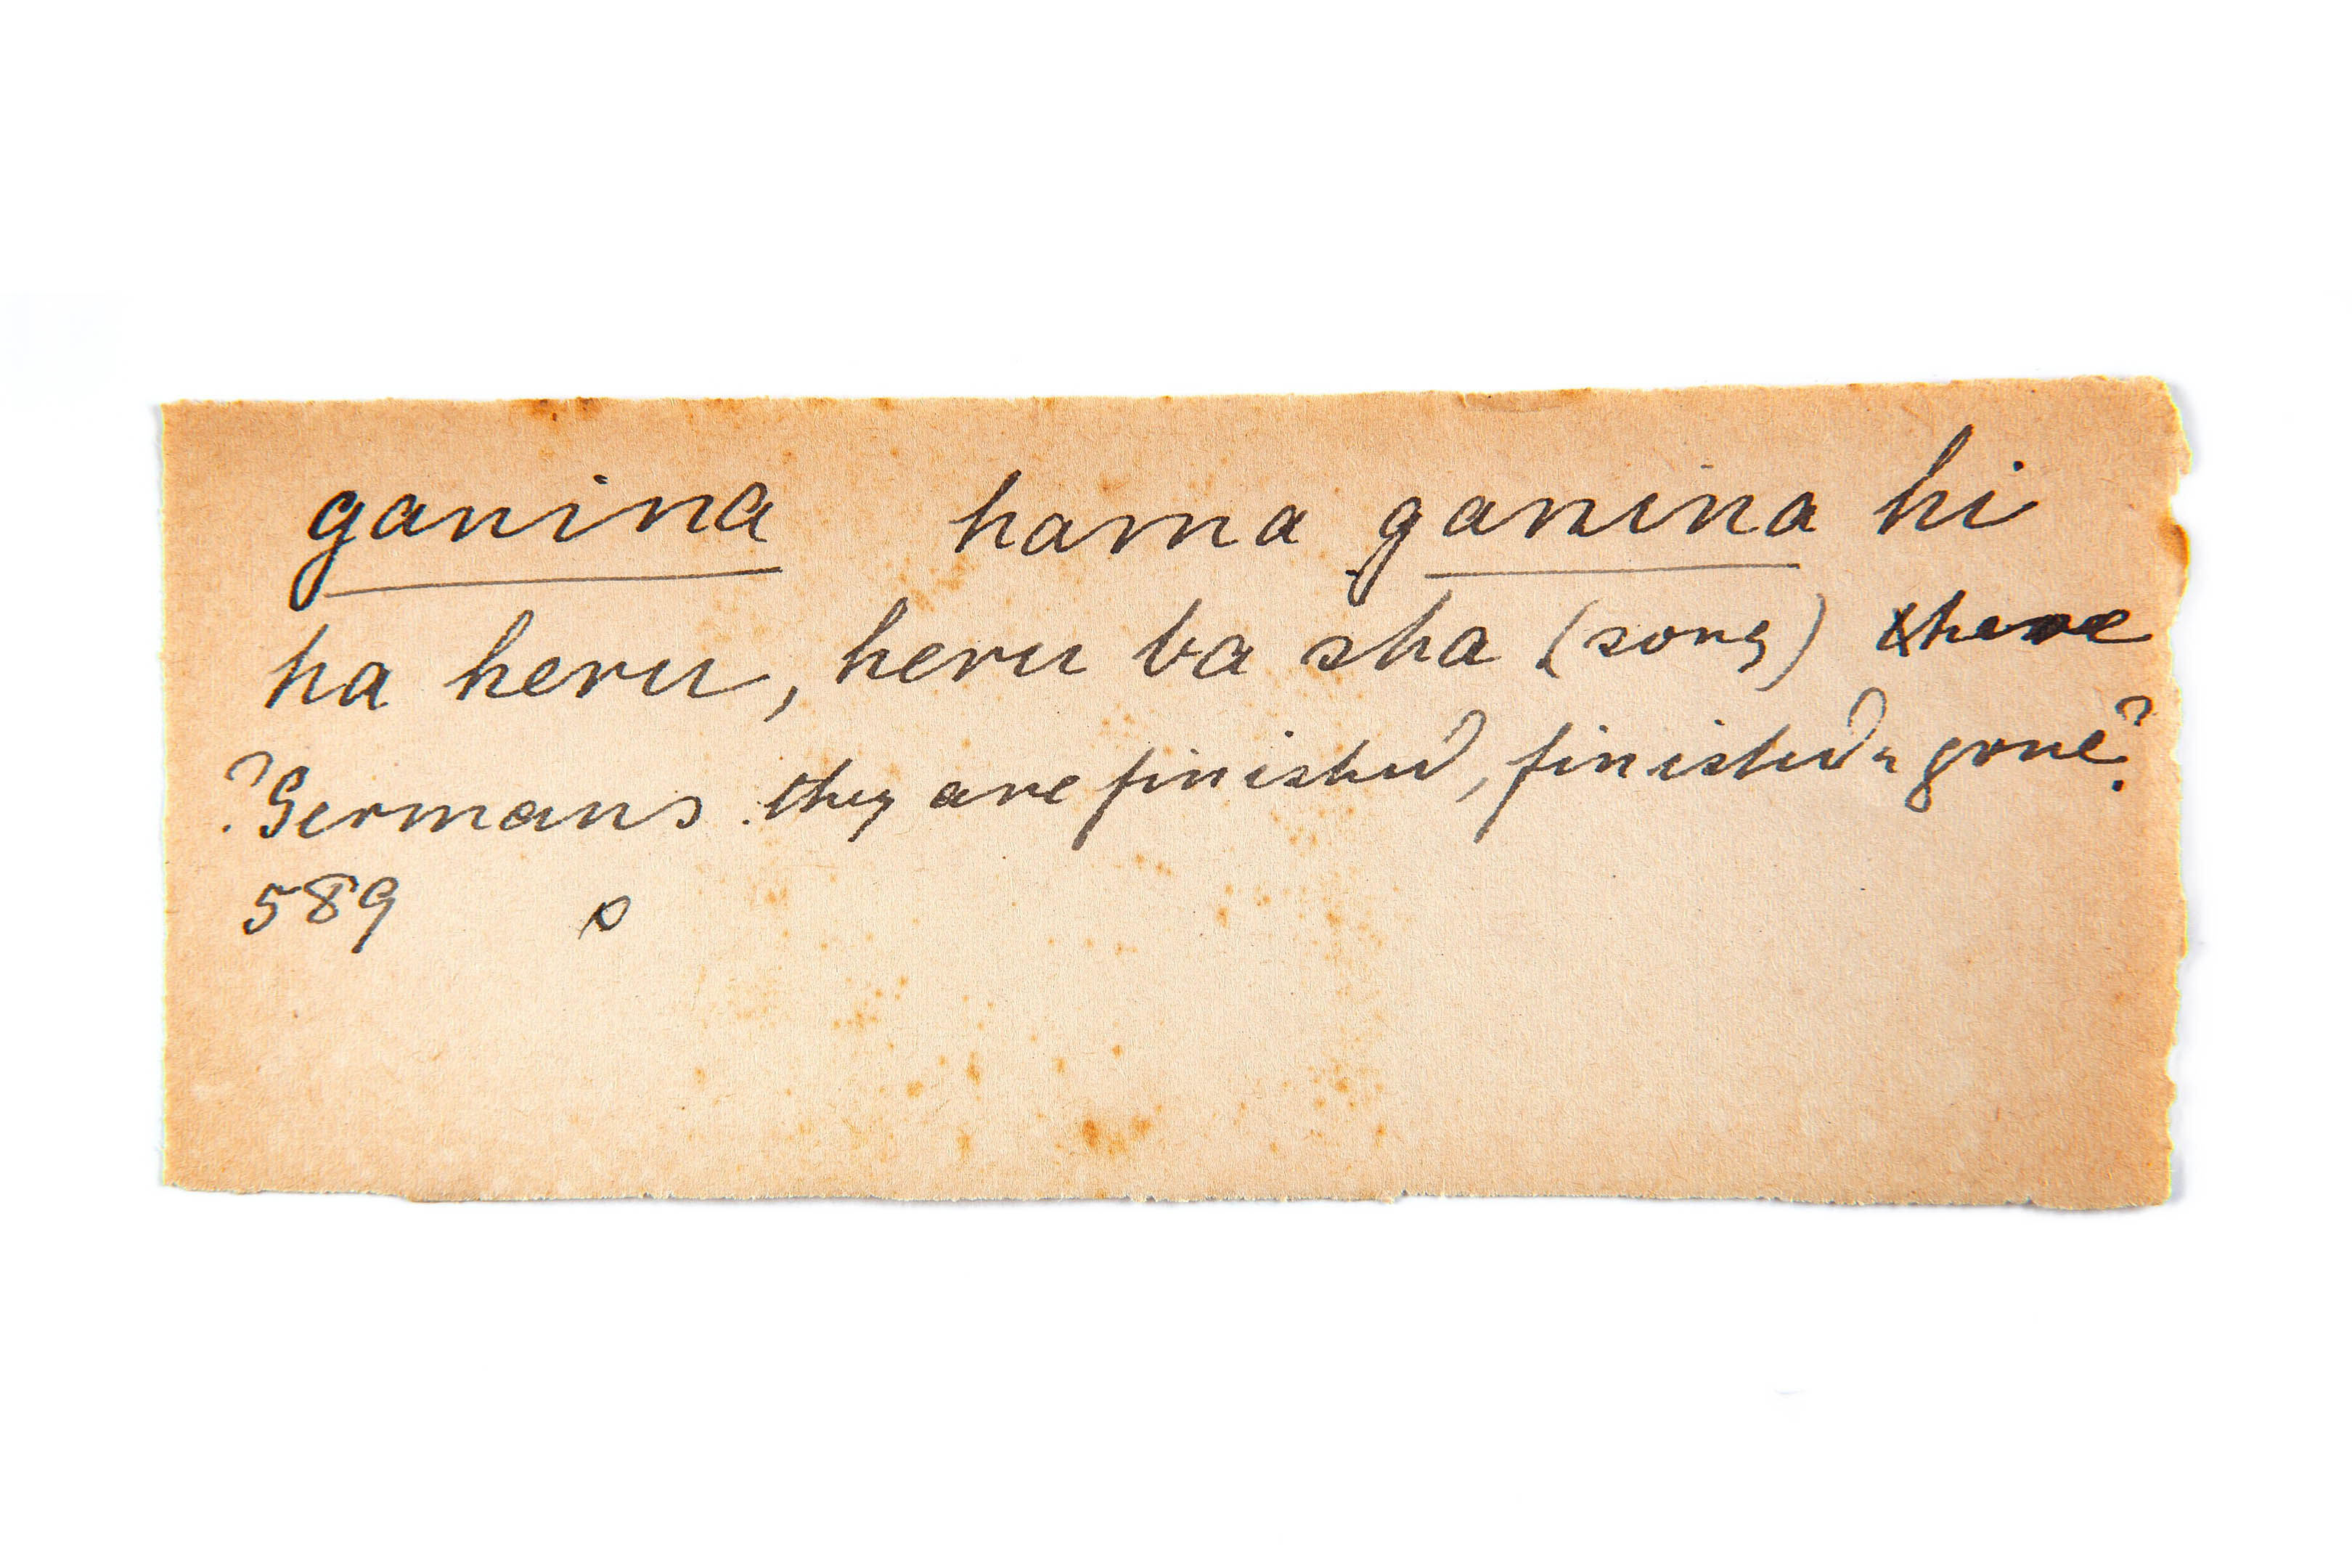 ganina hama ganina hi
ha heru, heru ba sha (song) these
?Germans they are finished, finished & gone?
589 o